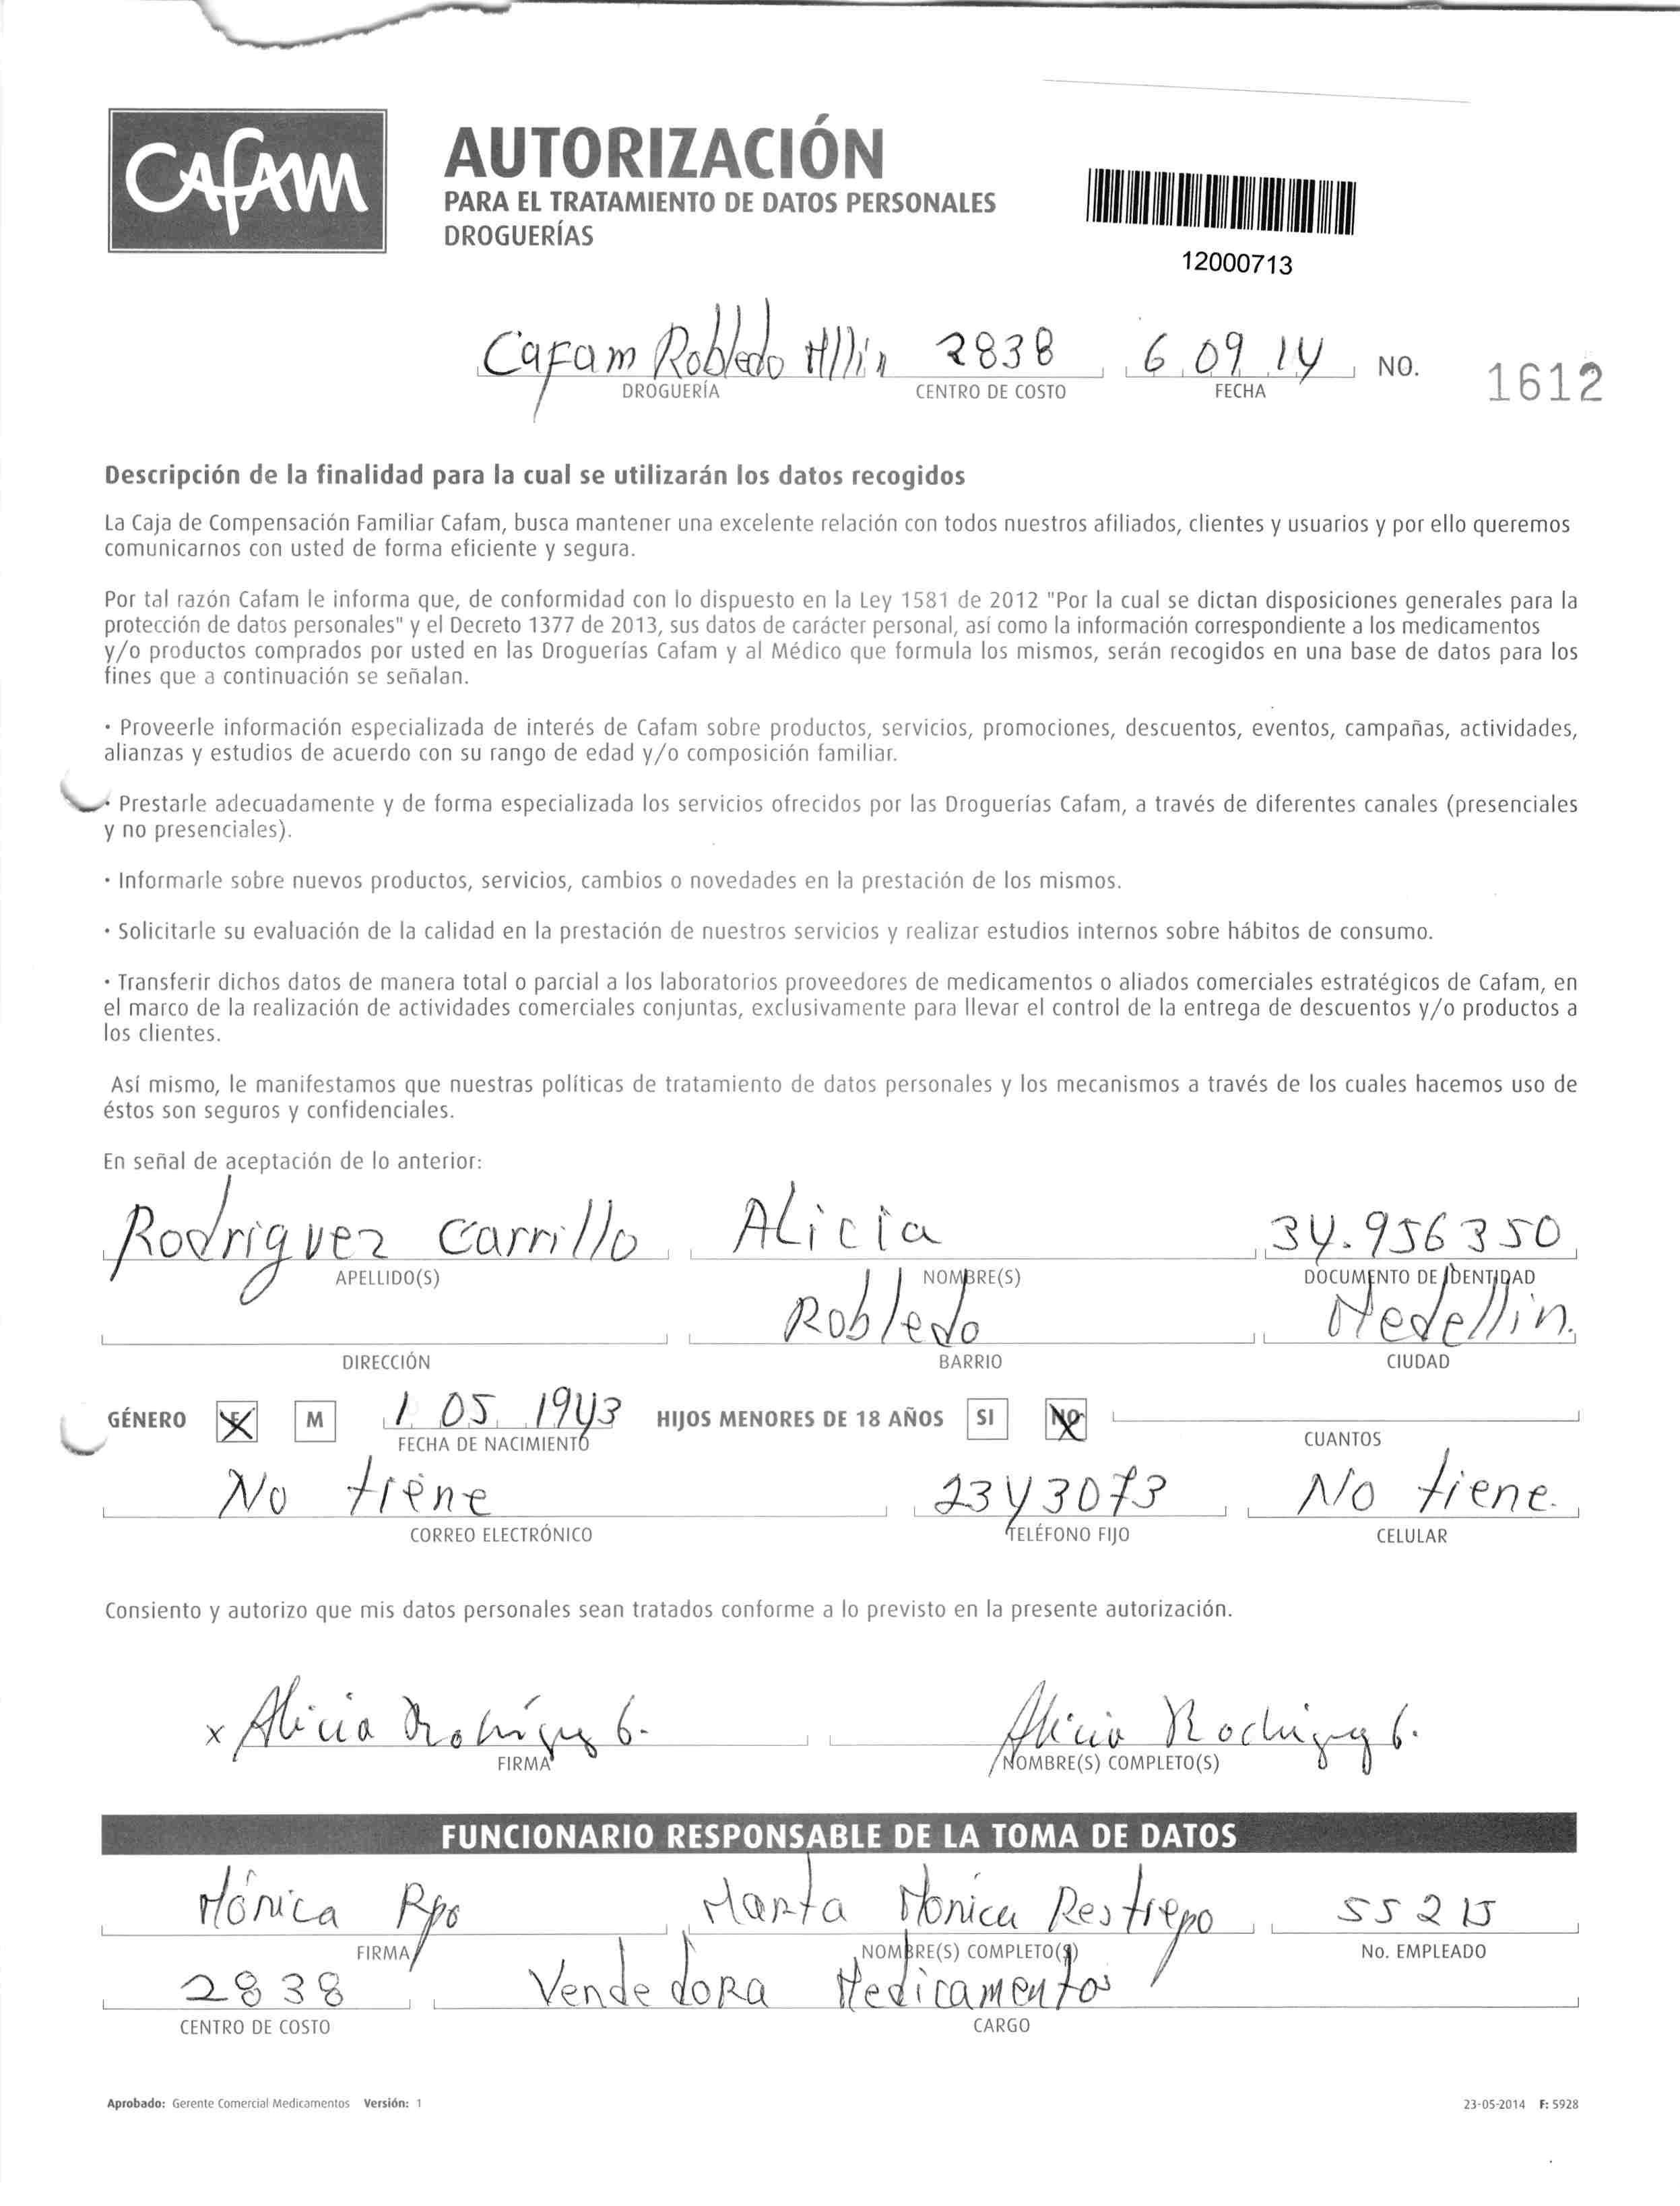 Cafam
AUTORIZACIÓN
PARA EL TRATAMIENTO DE DATOS PERSONALES
DROGUERÍAS
12000713
Cafam Robledo Mllin 2838 6 09 14 NO. 1612
DROGUERÍA CENTRO DE COSTO FECHA
Descripción de la finalidad para la cual se utilizarán los datos recogidos
La Caja de Compensación Familiar Cafam, busca mantener una excelente relación con todos nuestros afiliados, clientes y usuarios y por ello queremos
comunicarnos con usted de forma eficiente y segura.
Por tal razón Cafam le informa que, de conformidad con lo dispuesto en la Ley 1581 de 2012 "Por la cual se dictan disposiciones generales para la
protección de datos personales" y el Decreto 1377 de 2013, sus datos de carácter personal, así como la información correspondiente a los medicamentos
y/o productos comprados por usted en las Droguerías Cafam y al Médico que formula los mismos, serán recogidos en una base de datos para los
fines que a continuación se señalan.
· Proveerle información especializada de interés de Cafam sobre productos, servicios, promociones, descuentos, eventos, campañas, actividades,
alianzas y estudios de acuerdo con su rango de edad y/o composición familiar.
· Prestarle adecuadamente y de forma especializada los servicios ofrecidos por las Droguerías Cafam, a través de diferentes canales (presenciales
y no presenciales).
· Informarle sobre nuevos productos, servicios, cambios o novedades en la prestación de los mismos.
· Solicitarle su evaluación de la calidad en la prestación de nuestros servicios y realizar estudios internos sobre hábitos de consumo.
· Transferir dichos datos de manera total o parcial a los laboratorios proveedores de medicamentos o aliados comerciales estratégicos de Cafam, en
el marco de la realización de actividades comerciales conjuntas, exclusivamente para llevar el control de la entrega de descuentos y/o productos a
los clientes.
Así mismo, le manifestamos que nuestras políticas de tratamiento de datos personales y los mecanismos a través de los cuales hacemos uso de
éstos son seguros y confidenciales.
En señal de aceptación de lo anterior:
Rodriguez Carrillo Alicia 34.956350
APELLIDO(S) NOMBRE(S) DOCUMENTO DE IDENTIDAD
Robledo Medellin.
DIRECCIÓN BARRIO CIUDAD
GÉNERO F M 1 05 1943 HIJOS MENORES DE 18 AÑOS SI NO
FECHA DE NACIMIENTO CUANTOS
No tiene 2343073 No tiene.
CORREO ELECTRÓNICO TELÉFONO FIJO CELULAR
Consiento y autorizo que mis datos personales sean tratados conforme a lo previsto en la presente autorización.
x Alicia
Alicia
FIRMA NOMBRE(S) COMPLETO(S)
FUNCIONARIO RESPONSABLE DE LA TOMA DE DATOS
Mónica Rpo Marta Monica Restrepo 55215
FIRMA NOMBRE(S) COMPLETO(S) No. EMPLEADO
2838 Vendedora Medicamentos
CENTRO DE COSTO CARGO
Aprobado: Gerente Comercial Medicamentos Versión: 1 23-05-2014 F: 5928